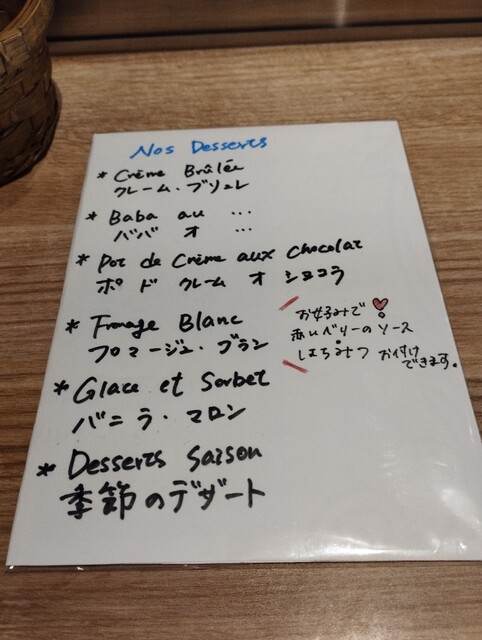 Nos Desserts
* Crème Brûlée
クレーム・ブリュレ
* Baba au ...
ババ オ ...
* Pot de Crème aux Chocolat
ポ ド クレーム オ ショコラ
* Fromage Blanc
フロマージュ・ブラン
お好みで
赤いベリーのソース
はちみつ お付け
できます。
* Glace et Sorbet
バニラ・マロン
* Desserts Saison
季節のデザート